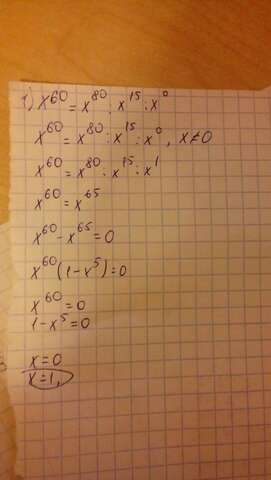 1) x^60 = x^80 : x^15 : x^0
x^60 = x^80 : x^15 : x^0, x ≠ 0
x^60 = x^80 : x^15 : x^1
x^60 = x^65
x^60 - x^65 = 0
x^60 (1 - x^5) = 0
x^60 = 0
1 - x^5 = 0
x = 0
x = 1,